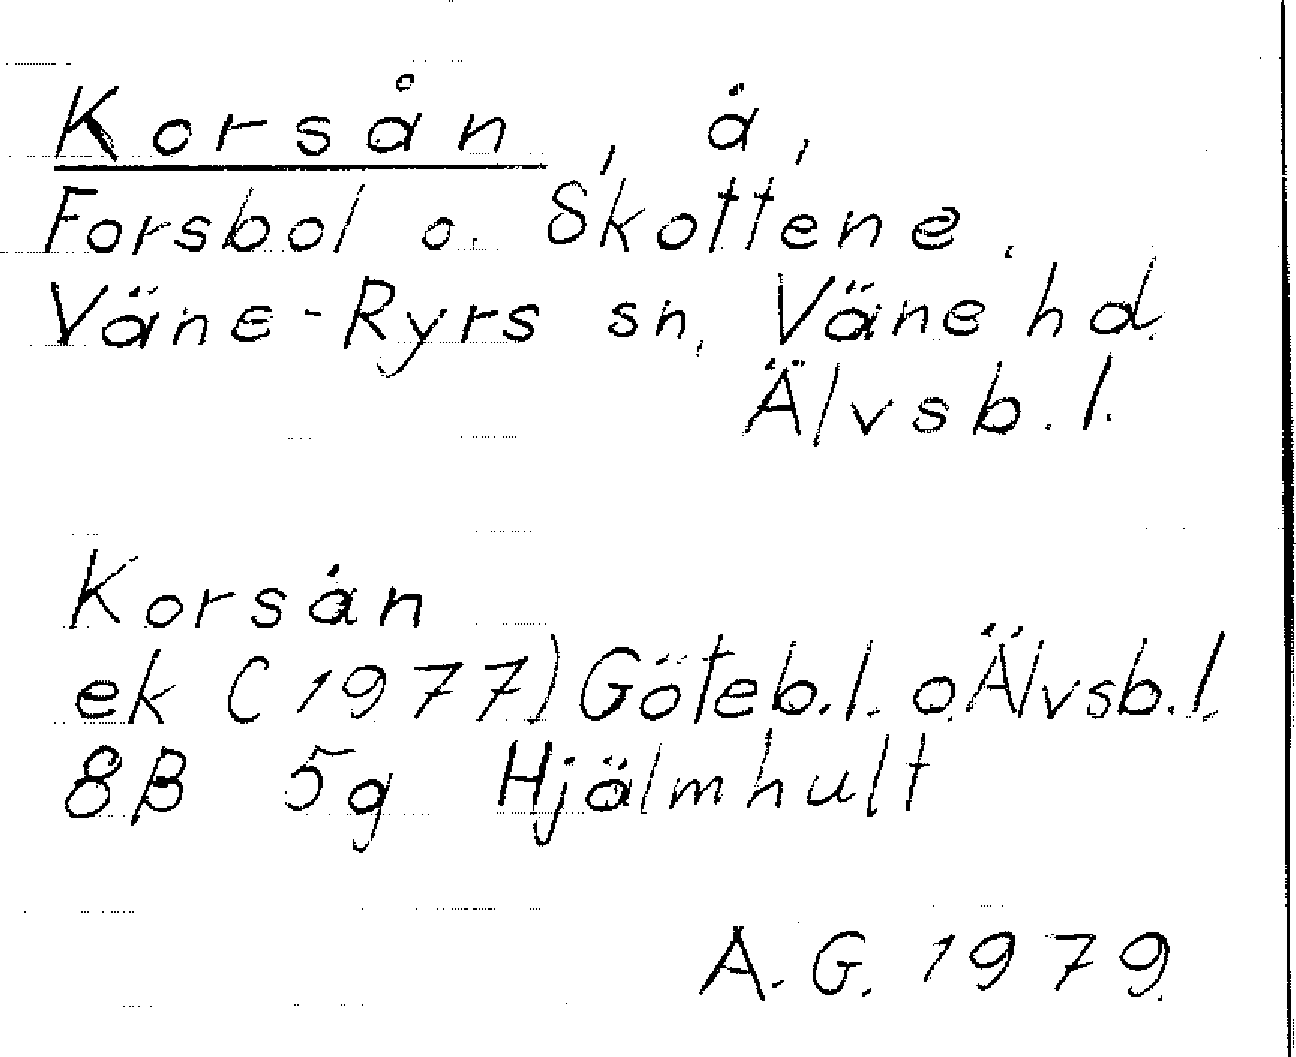 Korsån, å,
Forsbol o. Skottene,
Väne-Ryrs sn, Väne hd.
Älvsb. l.
Korsån
ek (1977) Göteb.l. o. Älvsb.l.
8B 5g Hjälmhult
A.G. 1979.